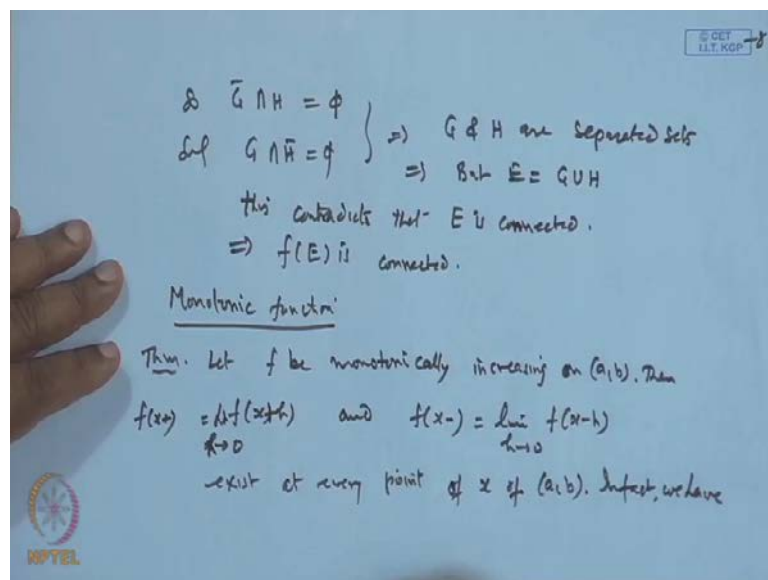 © CET
I.I.T. KGP
So G̅ ∩ H = φ
G ∩ H̅ = φ } ⇒ G & H are separated sets
⇒ But E = G ∪ H
this contradicts that E is connected.
⇒ f(E) is connected.
Monotonic function
Thm. Let f be monotonically increasing on (a,b). Then
f(x+) = lt f(x+h) and f(x-) = lim f(x-h)
h→0 h→0
exist at every point of x of (a,b). Infact, we have
NPTEL